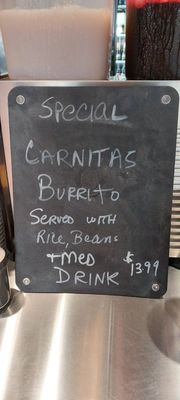 SPECIAL
CARNITAS
BURRITO
SERVED WITH
RICE, BEANS
+ MED
DRINK $13.99